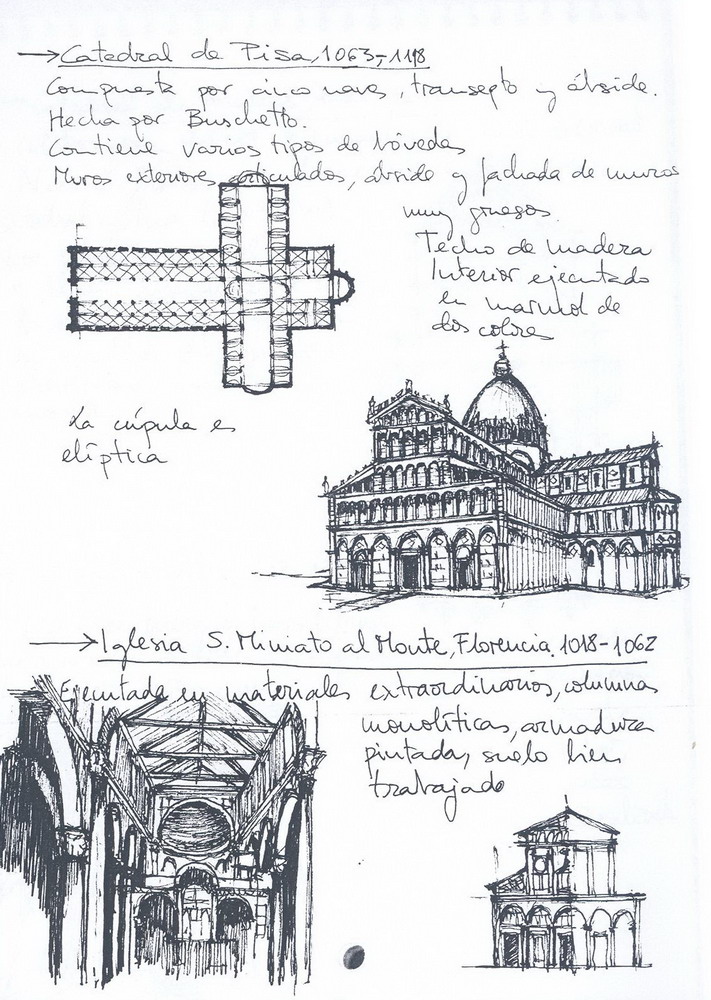 →Catedral de Pisa, 1063-1118
Compuesta por cinco naves, transepto y ábside.
Hecha por Buschetto.
Contiene varios tipos de bóvedas
Muros exteriores articulados, ábside y fachada de muros
muy gruesos.
Techo de madera
Interior ejecutado
en marmol de
dos colores
La cúpula es
elíptica
→Iglesia S. Miniato al Monte, Florencia. 1018-1062
Ejecutada en materiales extraordinarios, columnas
monolíticas, armadura
pintada, suelo bien
trabajado